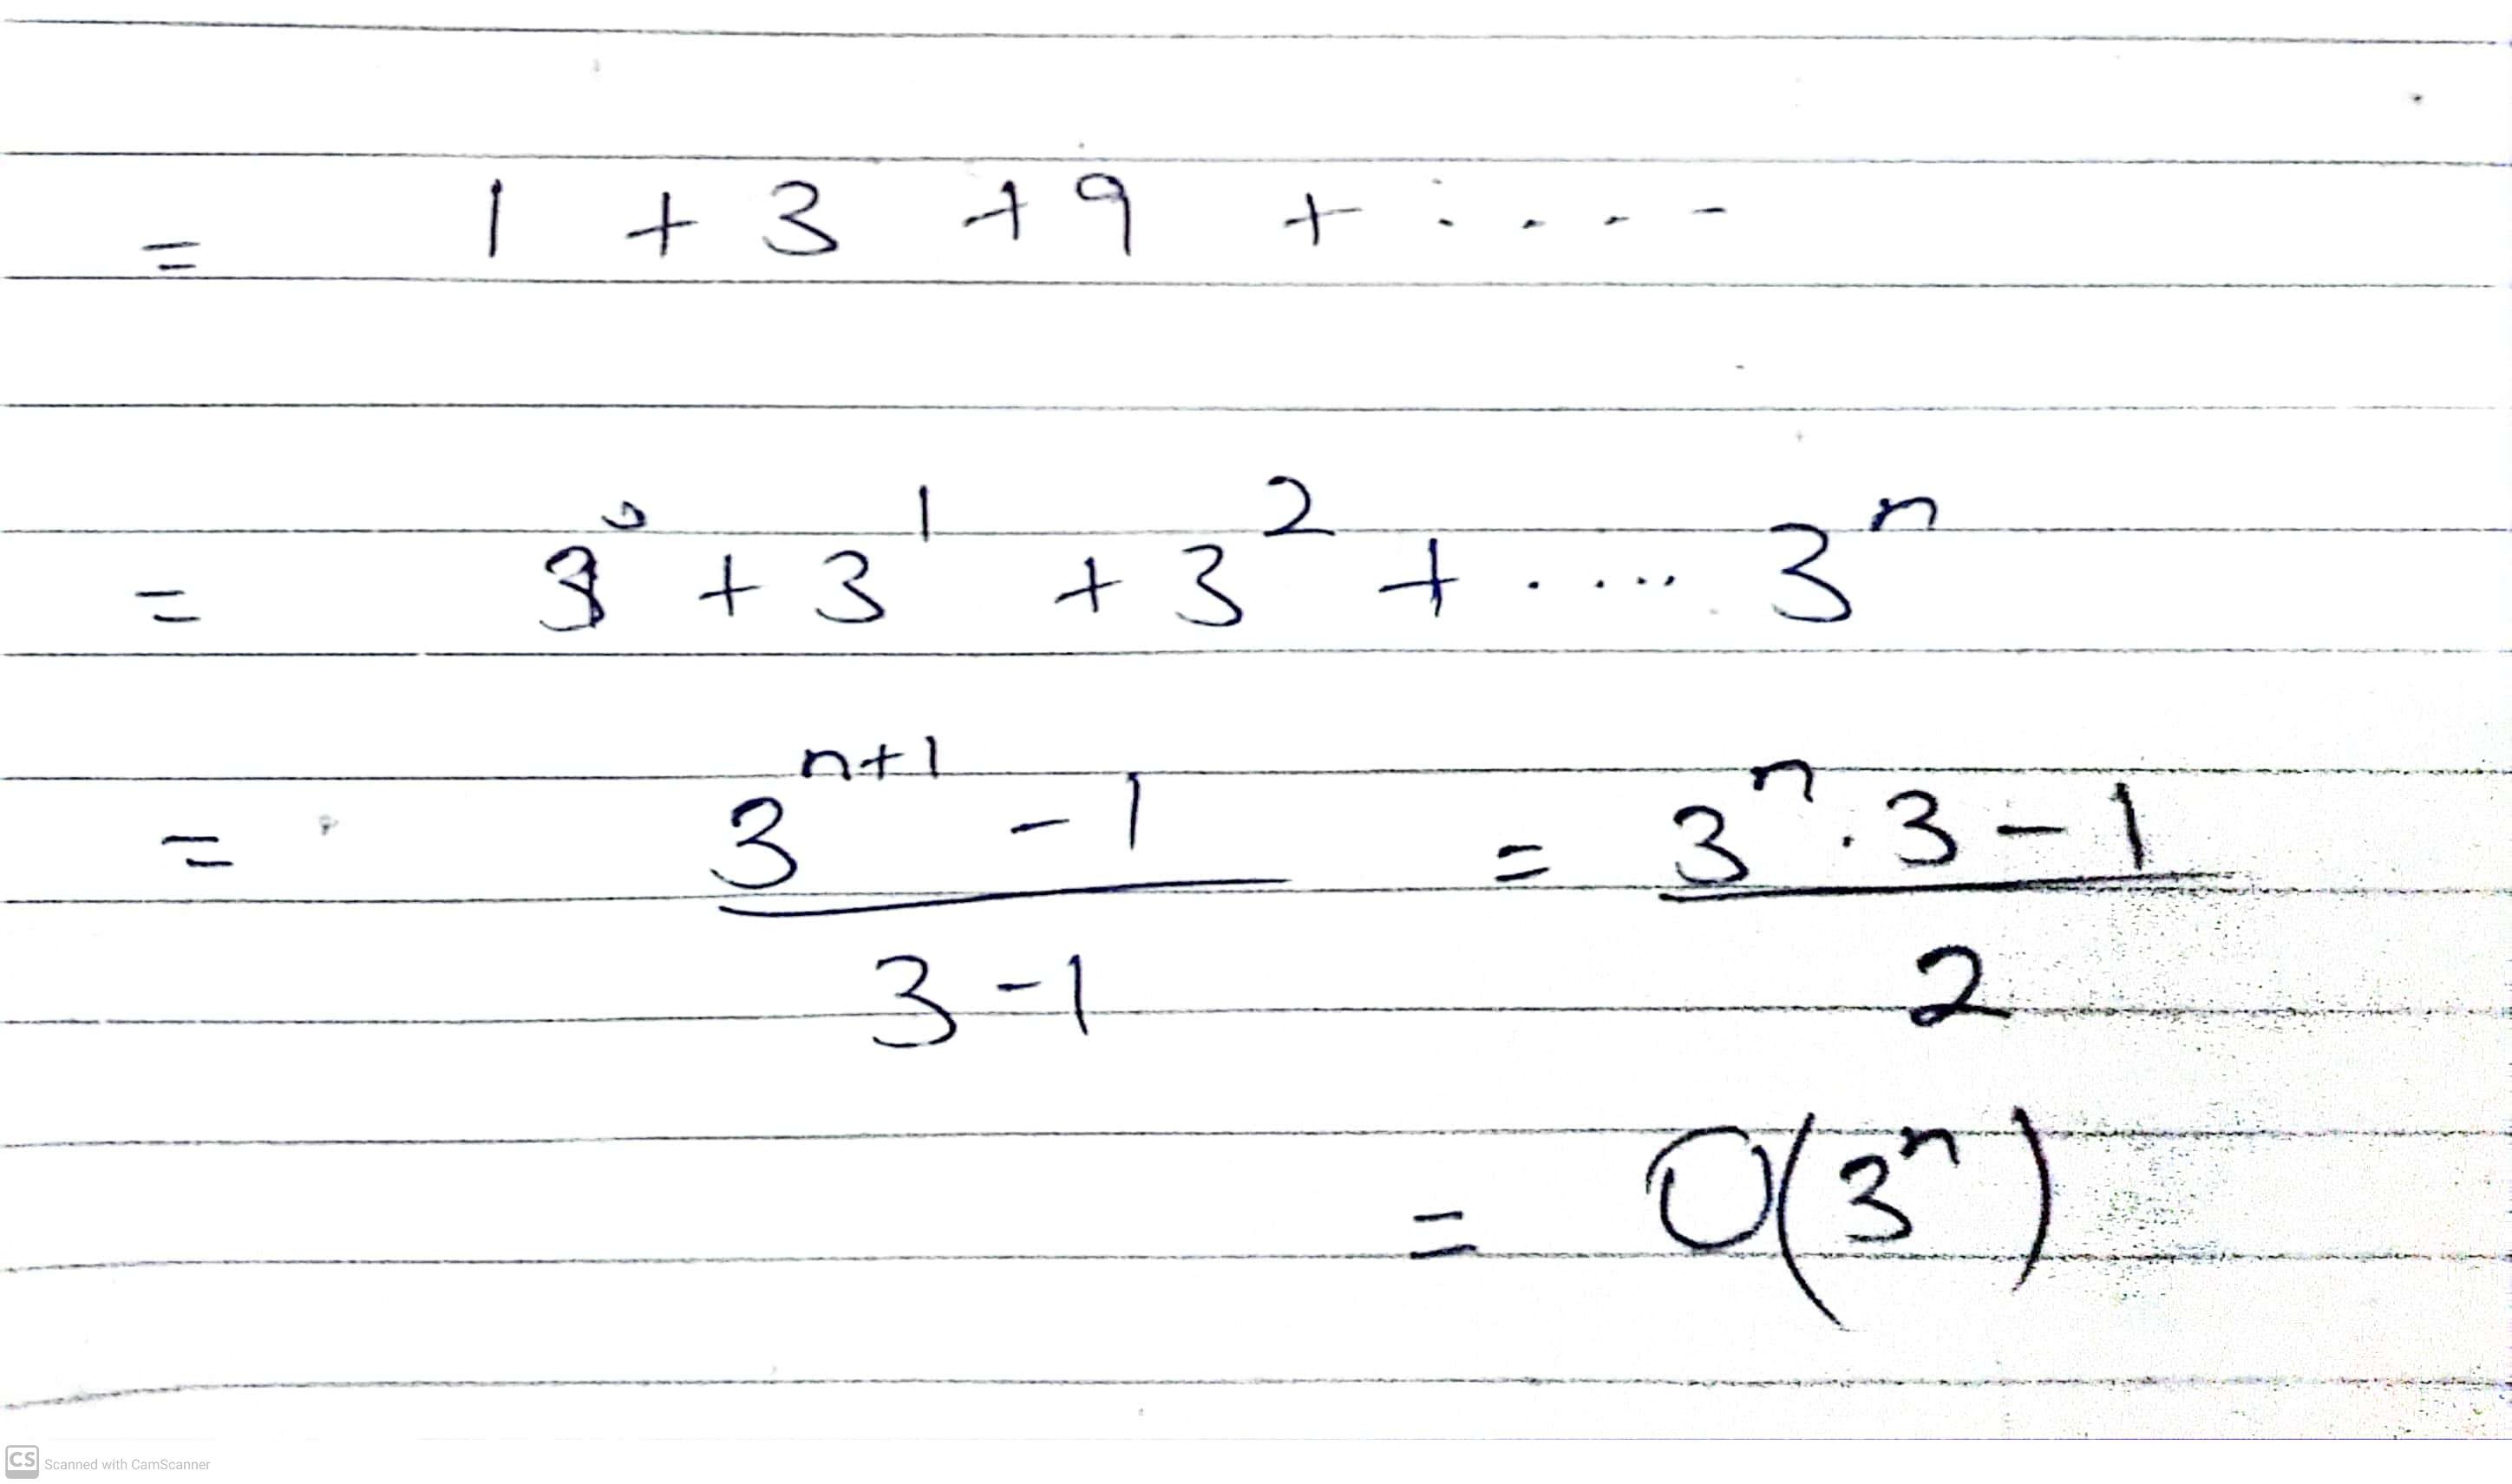 = 1 + 3 + 9 + ....-
= 3⁰ + 3¹ + 3² + ..... 3ⁿ
= (3ⁿ⁺¹ - 1)/(3 - 1) = (3ⁿ . 3 - 1)/2
= O(3ⁿ)
CS Scanned with CamScanner